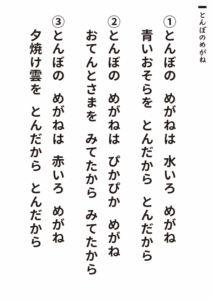 とんぼのめがね
①とんぼの めがねは 水いろ めがね
青いおそらを とんだから とんだから
②とんぼの めがねは ぴかぴか めがね
おてんとさまを みてたから みてたから
③とんぼの めがねは 赤いろ めがね
夕焼け雲を とんだから とんだから